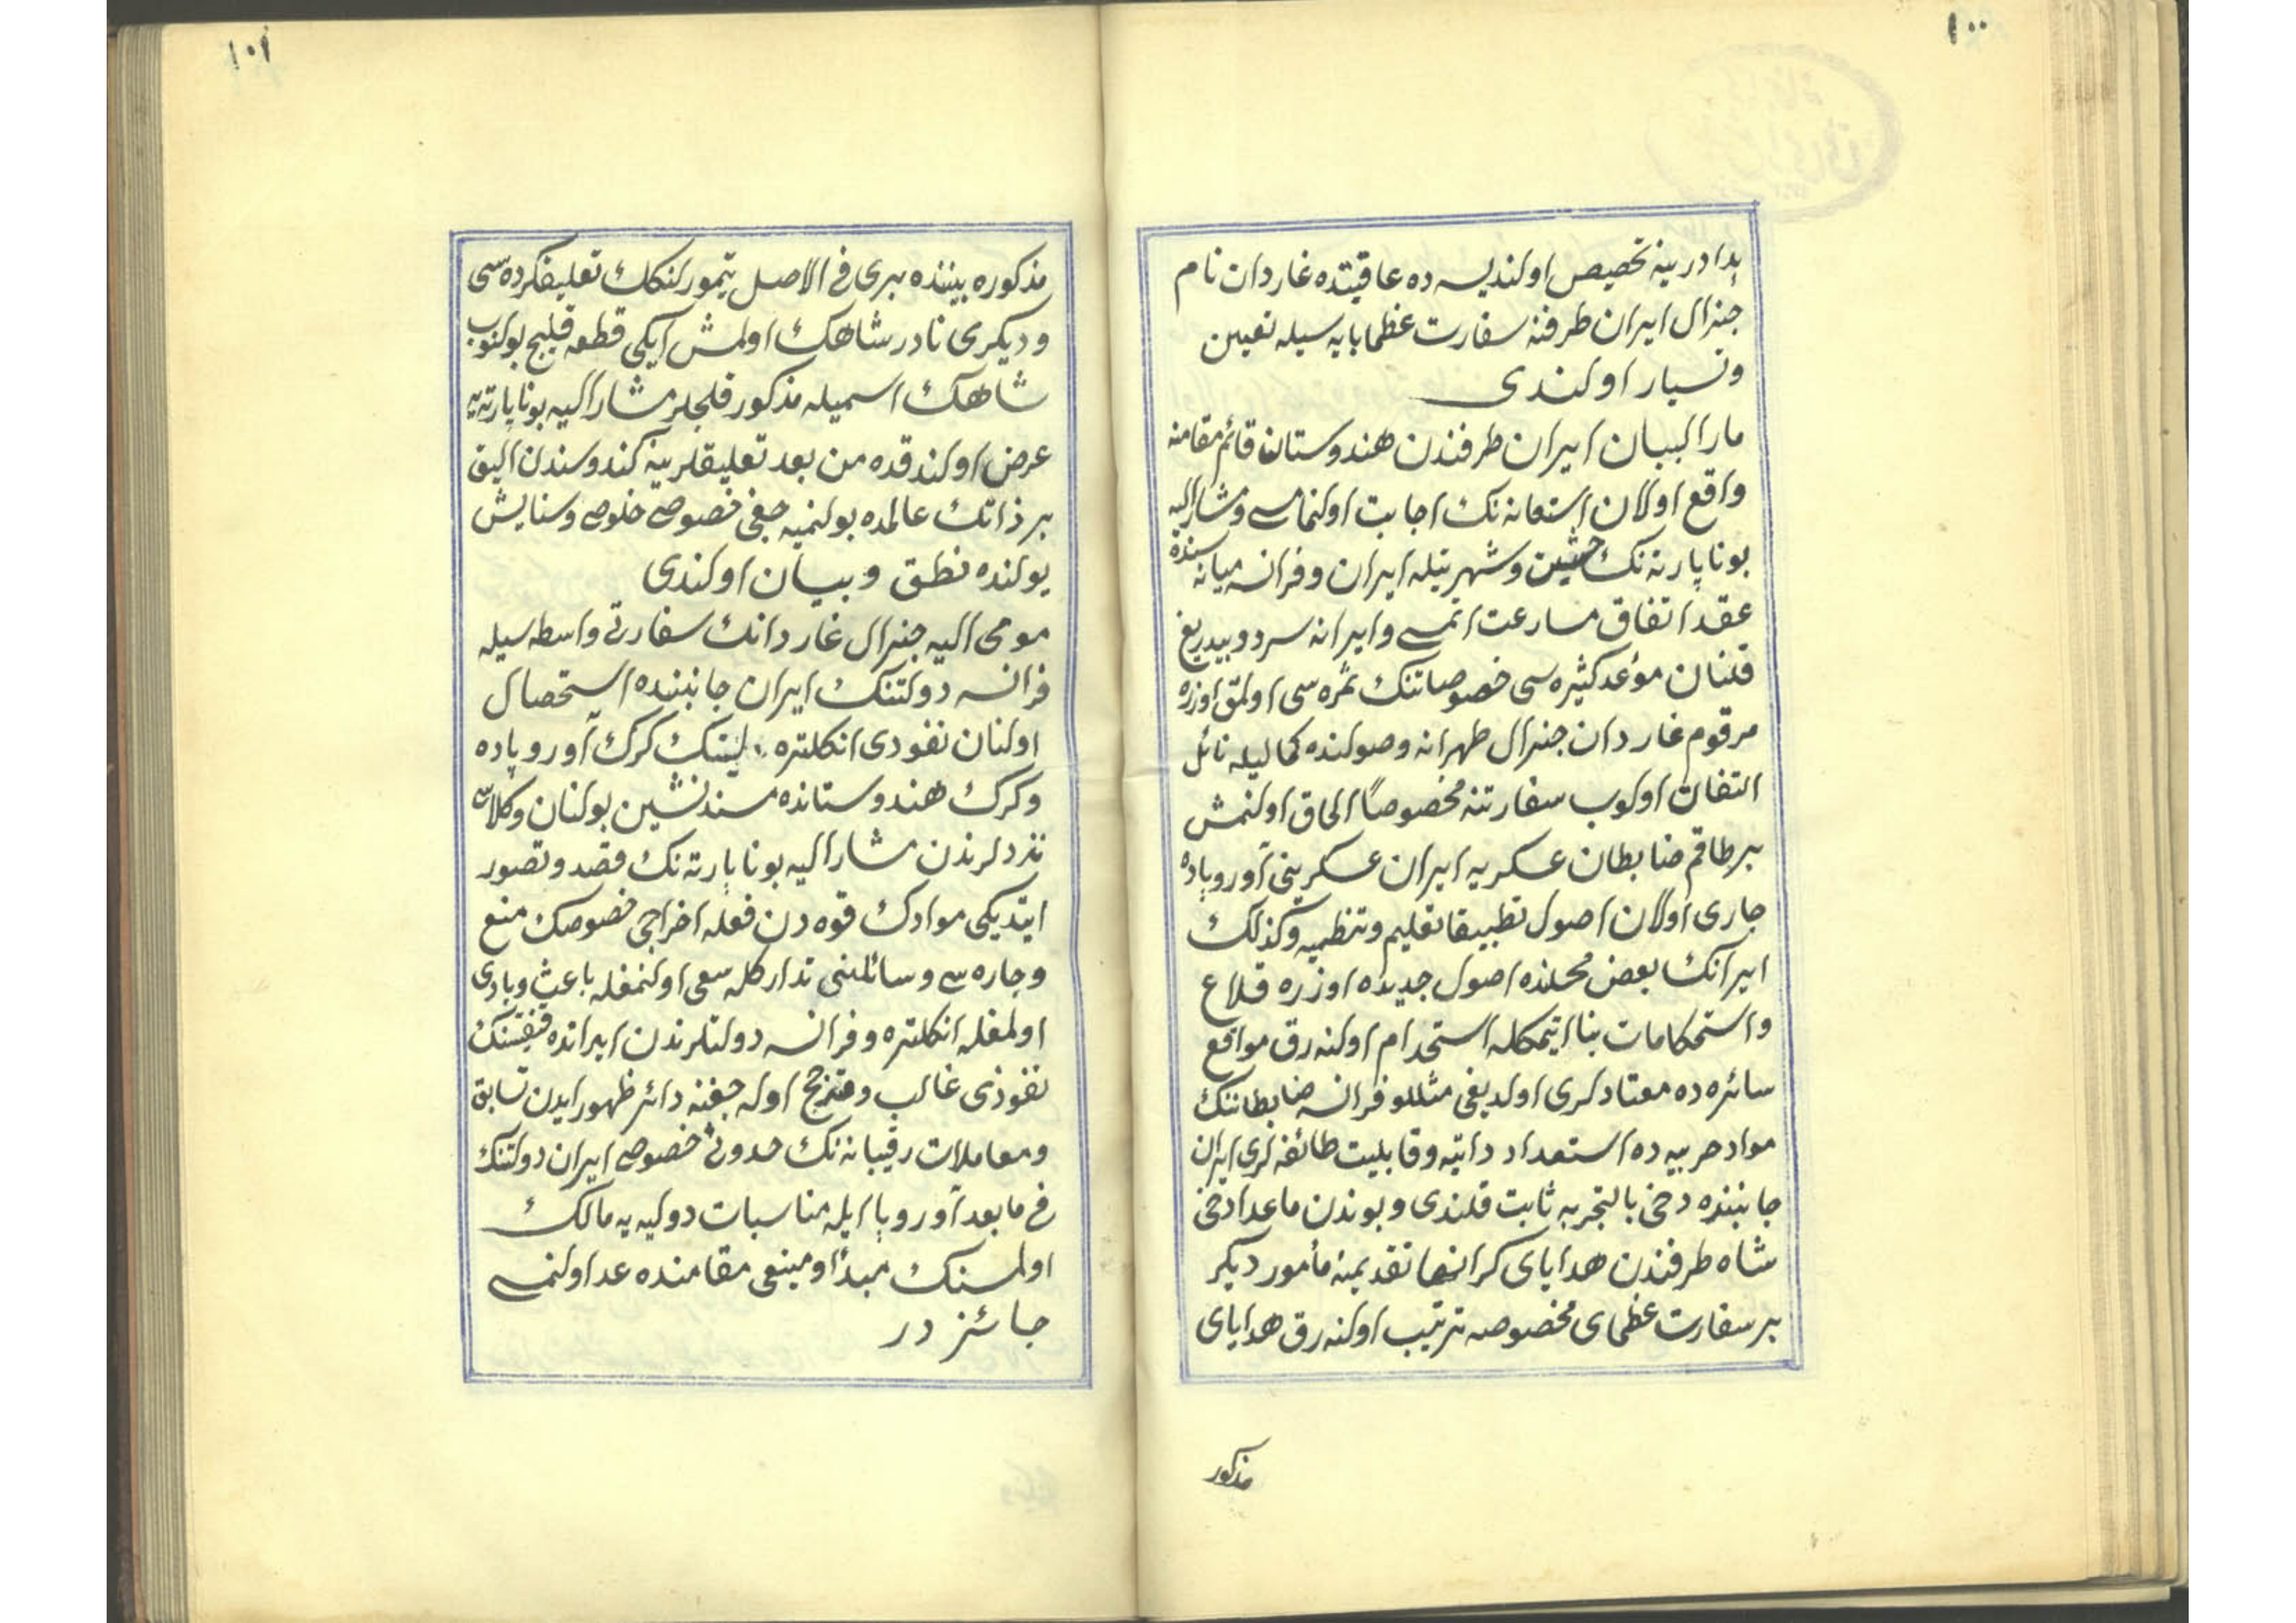 ١٠٠
بدادرينه تخصيص اولنديسه ده عاقبتده غاردان نام
جنرال ايران طرفنه سفارت عظما پايه سيله تعيين
وتسيار اولندى
مارالبيان ايران طرفندن هندوستان قائم مقامنه
واقع اولان استعانه نك اجابت اولنمامسى ومشاراليه
بوناپارته نك حيثيت وشهرتيله ايران وفرانسه ميانه سنده
عقد اتفاق مسارعت اتمسى وايرانه سرد و بيدريغ
قلنان مواعد كثيره سى خصوصاتنك ثمره سى اولمق اوزره
مرقوم غاردان جنرال طهرانه وصولنده كماليله نائل
التفات اولوب سفارتنه مخصوصاً الحاق اولنمش
برطاقم ضابطان عسكريه ايران عسكرينى آوروپاده
جارى اولان اصول تطبيقا تعليم وتنظيمه وكذلك
ايرانك بعض محلنده اصول جديده اوزره قلاع
واستحكامات بنا ايتمكله استخدام اولنه رق مواقع
سائره ده معتادلرى اولديغى مثللو فرانسه ضابطاننك
مواد حربيه ده استعداد ذاتيه وقابليت طائفه لرى ايران
جانبنده دخى بالتجربه ثابت قلندى وبوندن ماعدا دخى
شاه طرفندن هداياى كرانبها تقديمنه مأمور ديكر
بر سفارت عظماى مخصوصه ترتيب اولنه رق هداياى
مذكور
١٠١
مذكوره بيننده برى فى الاصل تيمورلنكك تعليفكرده سى
وديكرى نادر شاهك اولمش ايكى قطعه قليج بولنوب
شاهك اسميله مذكور قلجلر مشاراليه بوناپارته يه
عرض اولندقده من بعد تعليقلرينه كندوسندن اليق
بر ذاتك عالمده بولنميه جغى خصوصى خلوص وستايش
يولنده نطق وبيان اولندى
مومى اليه جنرال غاردانك سفارتى واسطه سيله
فرانسه دولتنك ايران جانبنده استحصال
اولنان نفوذى انكلتره لينك كرك آوروپاده
وكرك هندوستانده مسندنشين بولنان وكلاسى
نزدلرندن مشاراليه بوناپارته نك قصد وتصور
ايتديكى موادك قوه دن فعله اخراجى خصوصك منع
وچاره سى وسائلنى تداركله سعى اولنمغله باعث وبادى
اولمغله انكلتره وفرانسه دولتلرندن ايرانده قنقيسنك
نفوذى غالب ومترجح اوله جغنه دائر ظهور ايدن تسابق
ومعاملات رقيبانه نك حدوثى خصوصى ايران دولتنك
فى مابعد آوروپا ايله مناسبات دوليه يه مالك
اولمسنك مبدأ ومبنعى مقامنده عد اولنمسى
جائز در